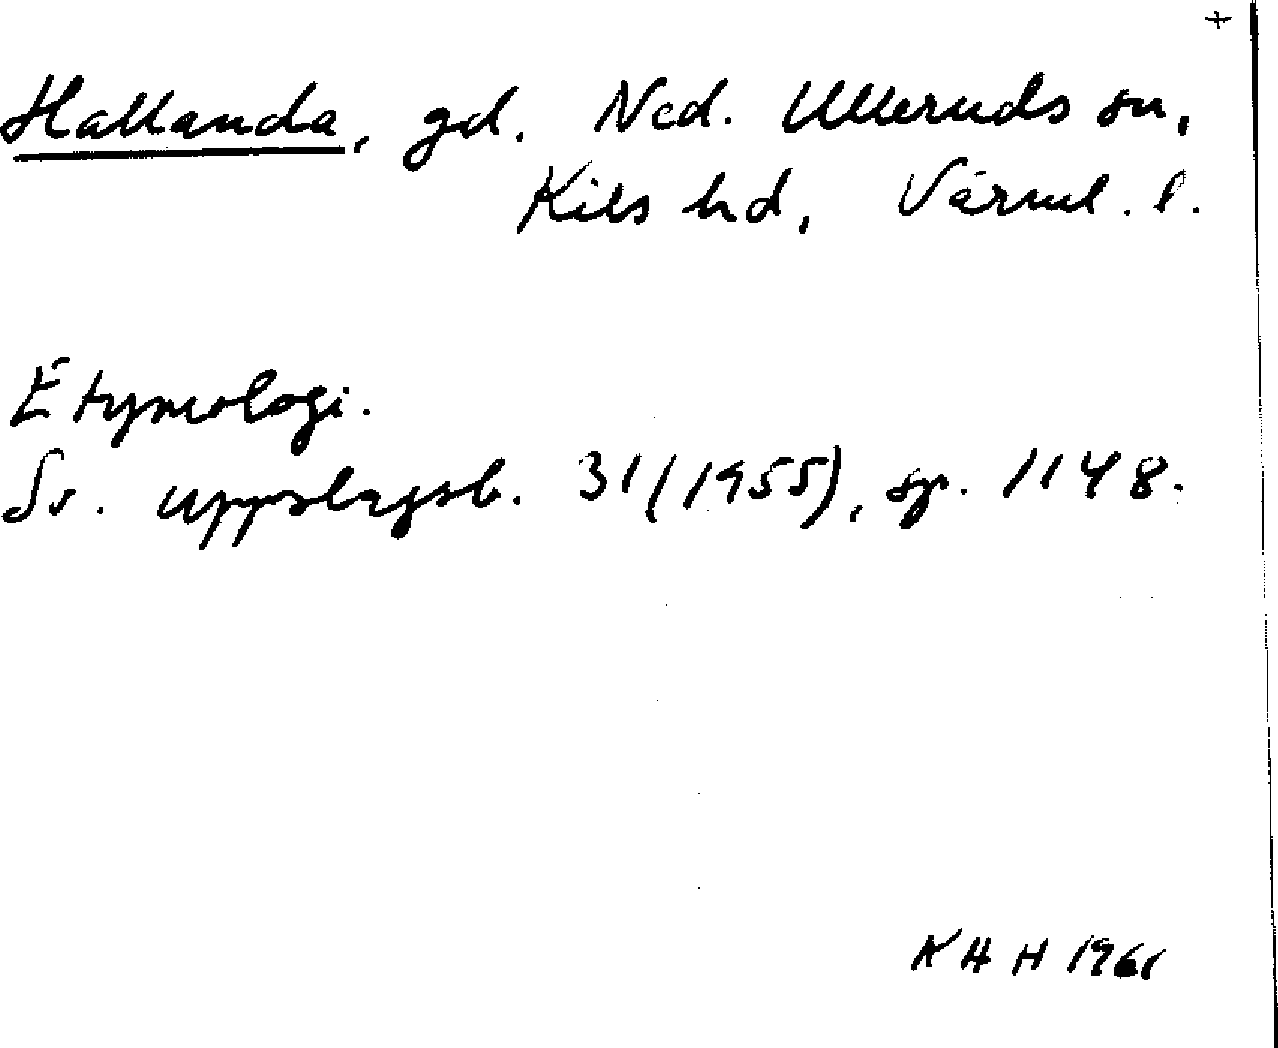 +
Hallanda, gd. Ned. Ulleruds sn,
Kils hd, Värml. l.
Etymologi.
Sv. uppslagsb. 31 (1955), sp. 1148.
KHH 1961